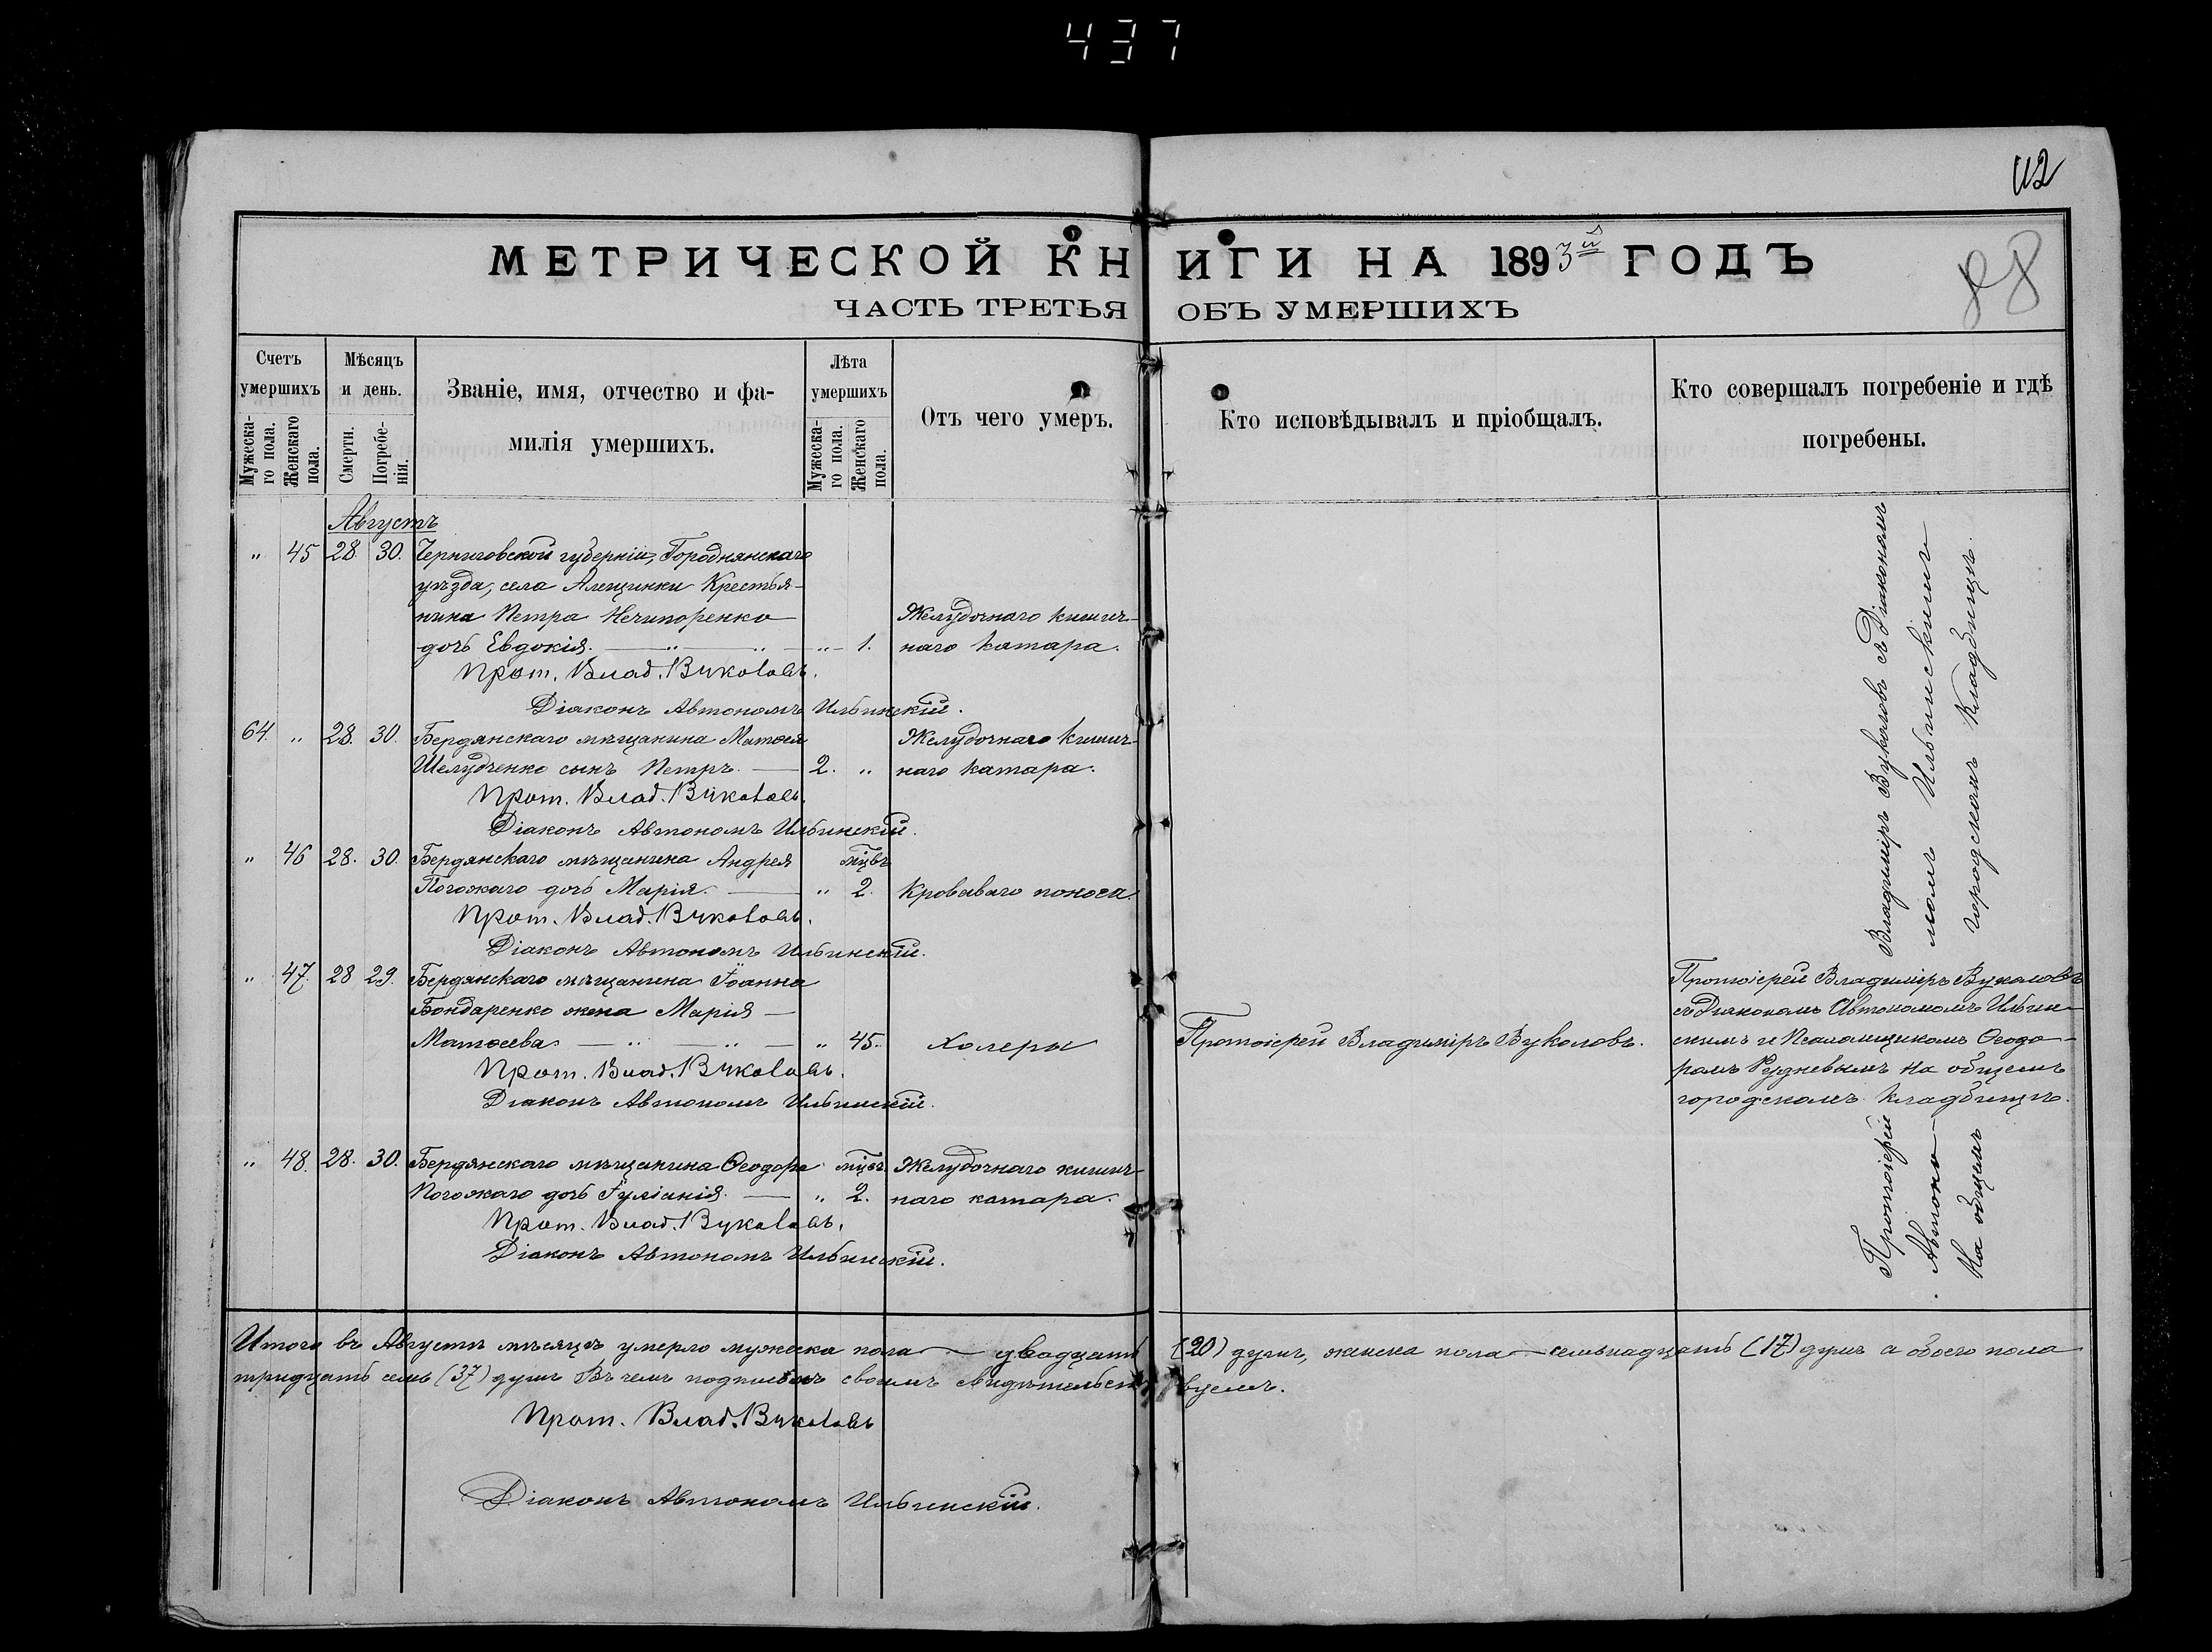 437
112
88
МЕТРИЧЕСКОЙ КНИГИ НА 1893й ГОДЪ
ЧАСТЬ ТРЕТЬЯ ОБЪ УМЕРШИХЪ
Счетъ умершихъ
Мужеска-го пола.
Женскаго пола.
Мѣсяцъ и день.
Смерти.
Погребе-нія.
Званіе, имя, отчество и фа-
милія умершихъ.
Лѣта умершихъ
Мужеска-го пола.
Женскаго пола.
Отъ чего умеръ.
Кто исповѣдывалъ и пріобщалъ.
Кто совершалъ погребеніе и гдѣ
погребены.
Августъ
" 45 28 30. Черниговской губерніи, Городнянскаго
уѣзда, села Алещинки Крестья-
нина Петра Нечипоренко Желудочнаго кишеч-
дочь Евдокія. — " — " — " — 1. наго катара.
Прот. Влад. Вуколовъ.
Діаконъ Автономъ Ильинскій.
64. " 28. 30. Бердянскаго мѣщанина Матѳея Желудочнаго кишеч-
Шелудченко сынъ Петръ. — 2. " наго катара.
Прот. Влад. Вуколовъ.
Діаконъ Автономъ Ильинскій.
" 46 28. 30. Бердянскаго мѣщанина Андрея мцвъ
Погожаго дочь Марія. — " 2. Кроваваго поноса.
Прот. Влад. Вуколовъ.
Діаконъ Автономъ Ильинскій.
" 47. 28 29. Бердянскаго мѣщанина Іоанна
Бондаренко жена Марія —
Матѳеева. — " — " — " 45. Холеры
Протоіерей Владиміръ Вуколовъ.
Протоіерей Владиміръ Вуколовъ
съ Діакономъ Автономомъ Ильин-
скимъ и Псаломщикомъ Ѳеодо-
ромъ на общемъ
городскомъ кладбищѣ.
Прот. Влад. Вуколовъ.
Діаконъ Автономъ Ильинскій.
" 48. 28. 30. Бердянскаго мѣщанина Ѳеодора мцвъ Желудочнаго кишеч-
Погожаго дочь Іуліанія. — " 2. наго катара.
Прот. Влад. Вуколовъ.
Діаконъ Автономъ Ильинскій.
Протоіерей Владиміръ Вуколовъ съ Діакономъ
Автоно-момъ Ильинскимъ
На общемъ городскомъ кладбищѣ.
Итого въ Августѣ мѣсяцѣ умерло мужеска пола — двадцать (20) душъ, женска пола — семьнадцать (17) душъ а обоего пола
тридцать семь (37) душъ Въ чемъ подписомъ своимъ свидѣтельствуемъ.
Прот. Влад. Вуколовъ
Діаконъ Автономъ Ильинскій.